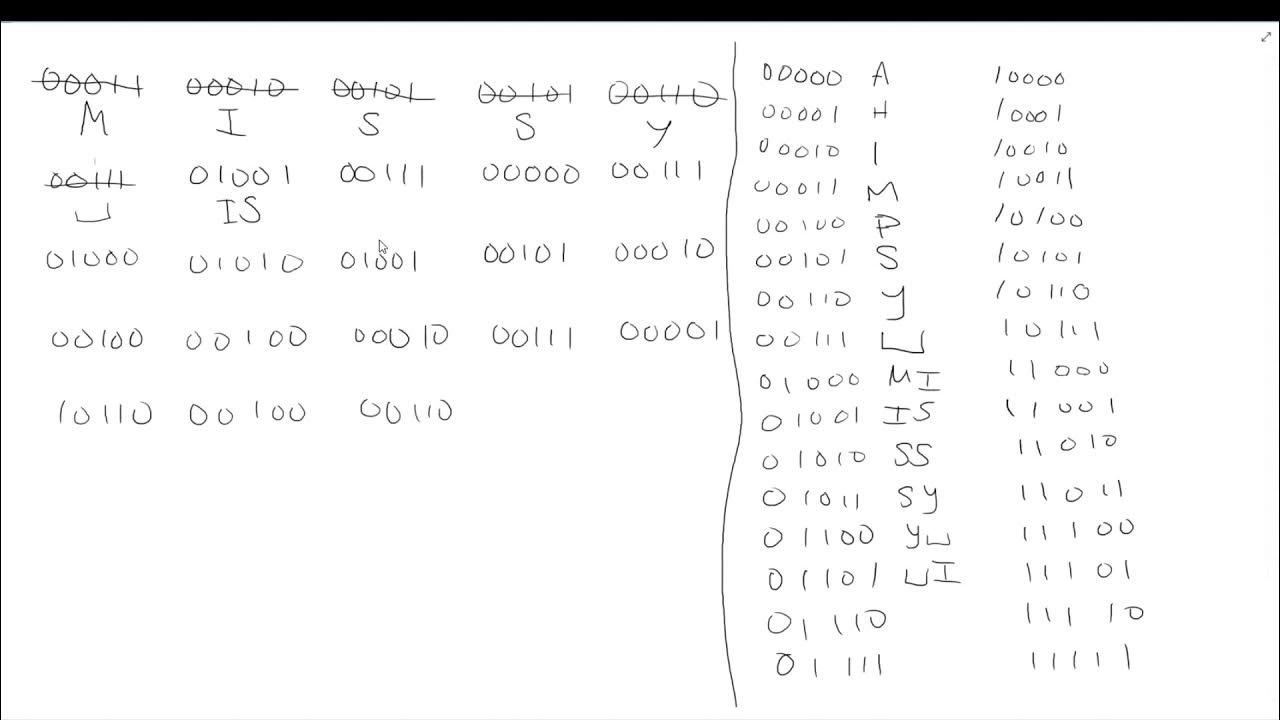 00011 00010 00101 00101 00110
M I S S Y
00111 01001 00111 00000 00111
␣ IS
01000 01010 01001 00101 00010
00100 00100 00010 00111 00001
10110 00100 00110
00000 A 10000
00001 H 10001
00010 I 10010
00011 M 10011
00100 P 10100
00101 S 10101
00110 Y 10110
00111 ␣ 10111
01000 MI 11000
01001 IS 11001
01010 SS 11010
01011 SY 11011
01100 Y␣ 11100
01101 ␣I 11101
01110 11110
01111 11111